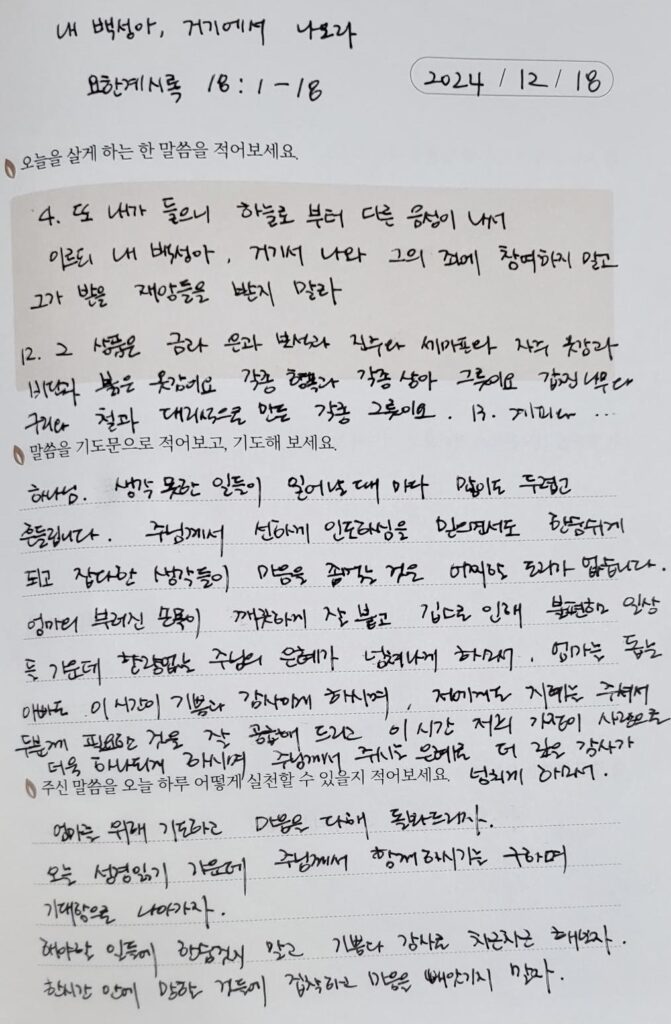 내 백성아, 거기에서 나오라
요한계시록 18 : 1 - 18
2024 / 12 / 18
오늘을 살게 하는 한 말씀을 적어보세요.
4. 또 내가 들으니 하늘로 부터 다른 음성이 나서
이르되 내 백성아, 거기서 나와 그의 죄에 참여하지 말고
그가 받을 재앙들을 받지 말라
12. 그 상품은 금과 은과 보석과 진주와 세마포와 자주 옷감과
비단과 붉은 옷감이요 각종 향목과 각종 상아 그릇이요 값진 나무와
구리와 철과 대리석으로 만든 각종 그릇이요. 13. 계피와 ...
말씀을 기도문으로 적어보고, 기도해 보세요.
하나님. 생각 못한 일들이 일어날 때 마다 많이도 두렵고
흔들립니다. 주님께서 선하게 인도하심을 믿으면서도 한숨쉬게
되고 잡다한 생각들이 마음을 좀먹는 것은 어찌할 도리가 없습니다.
엄마의 부러진 손목이 깨끗하게 잘 붙고 깁스로 인해 불편한 일상
들 가운데 한량없는 주님의 은혜가 넘쳐나게 하소서. 엄마를 돕는
아빠도 이 시간이 기쁨과 감사이게 하시며, 저에게도 지혜를 주셔서
두분께 필요한 것을 잘 공급해 드리고 이 시간 저희 가정이 사랑으로
더욱 하나되게 하시며 주님께서 주시는 은혜로 더 깊은 감사가
넘치게 하소서.
주신 말씀을 오늘 하루 어떻게 실천할 수 있을지 적어보세요.
엄마를 위해 기도하고 마음을 다해 돌봐드리자.
오늘 성경읽기 가운데 주님께서 함께하시기를 구하며
기대함으로 나아가자.
해야할 일들에 한숨짓지 말고 기쁨과 감사로 차근차근 해보자.
한시간 안에 망할 것들에 집착하고 마음을 빼앗기지 말자.